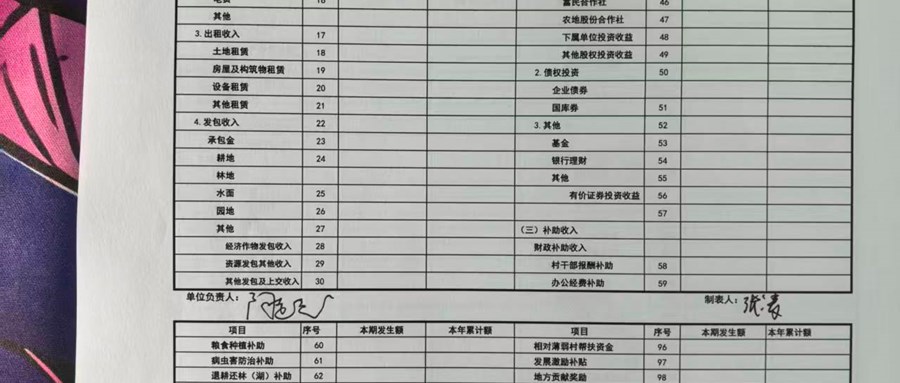 电费 16 富民合作社 46
其他 农地股份合作社 47
3.出租收入 17 下属单位投资收益 48
土地租赁 18 其他股权投资收益 49
房屋及构筑物租赁 19 2.债权投资 50
设备租赁 20 企业债券
其他租赁 21 国库券 51
4.发包收入 22 3.其他 52
承包金 23 基金 53
耕地 24 银行理财 54
林地 其他 55
水面 25 有价证券投资收益 56
园地 26 57
其他 27 (三)补助收入
经济作物发包收入 28 财政补助收入
资源发包其他收入 29 村干部报酬补助 58
其他发包及上交收入 30 办公经费补助 59
单位负责人: 制表人:
项目 序号 本期发生额 本年累计额 项目 序号 本期发生额 本年累计额
粮食种植补助 60 相对薄弱村帮扶资金 96
病虫害防治补助 61 发展激励补贴 97
退耕还林(湖)补助 62 地方贡献奖励 98